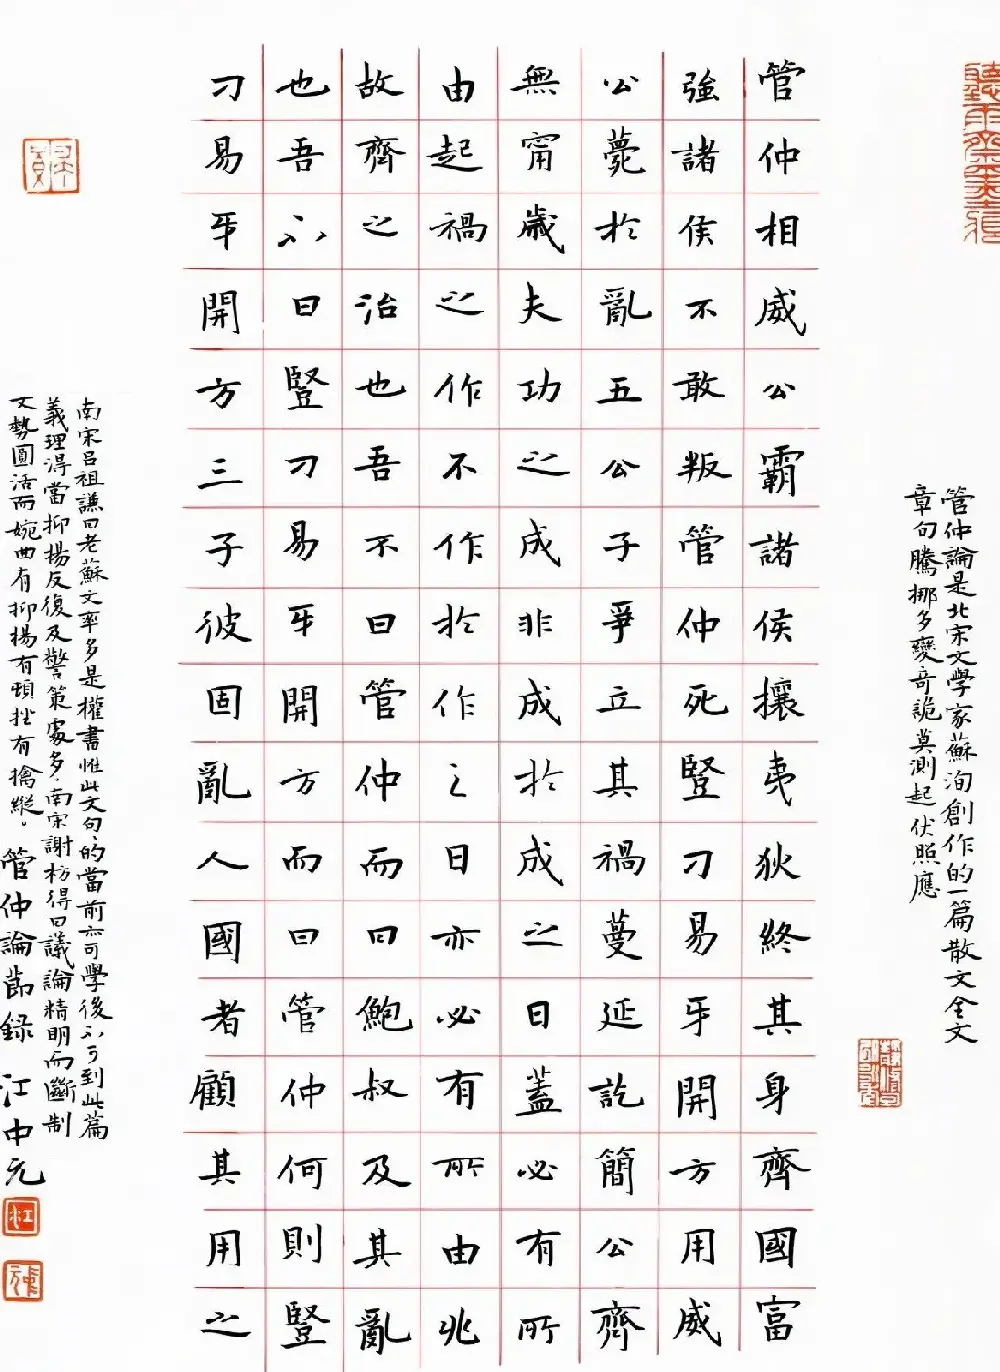 管仲論是北宋文學家蘇洵創作的一篇散文全文
章句騰挪多變奇詭莫測起伏照應
管仲相威公霸諸侯攘夷狄終其身齊國富
強諸侯不敢叛管仲死豎刁易牙開方用威
公薨於亂五公子爭立其禍蔓延訖簡公齊
無甯歲夫功之成非成於成之日蓋必有所
由起禍之作不作於作之日亦必有所由兆
故齊之治也吾不曰管仲而曰鮑叔及其亂
也吾不曰豎刁易牙開方而曰管仲何則豎
刁易牙開方三子彼固亂人國者顧其用之
南宋呂祖謙曰老蘇文率多是權書惟此文句的當前亦可學後不可到此篇
義理得當抑揚反復及警策處多南宋謝枋得曰議論精明而斷制
文勢圓活而婉曲有抑揚有頓挫有擒縱。
管仲論節錄 江中元